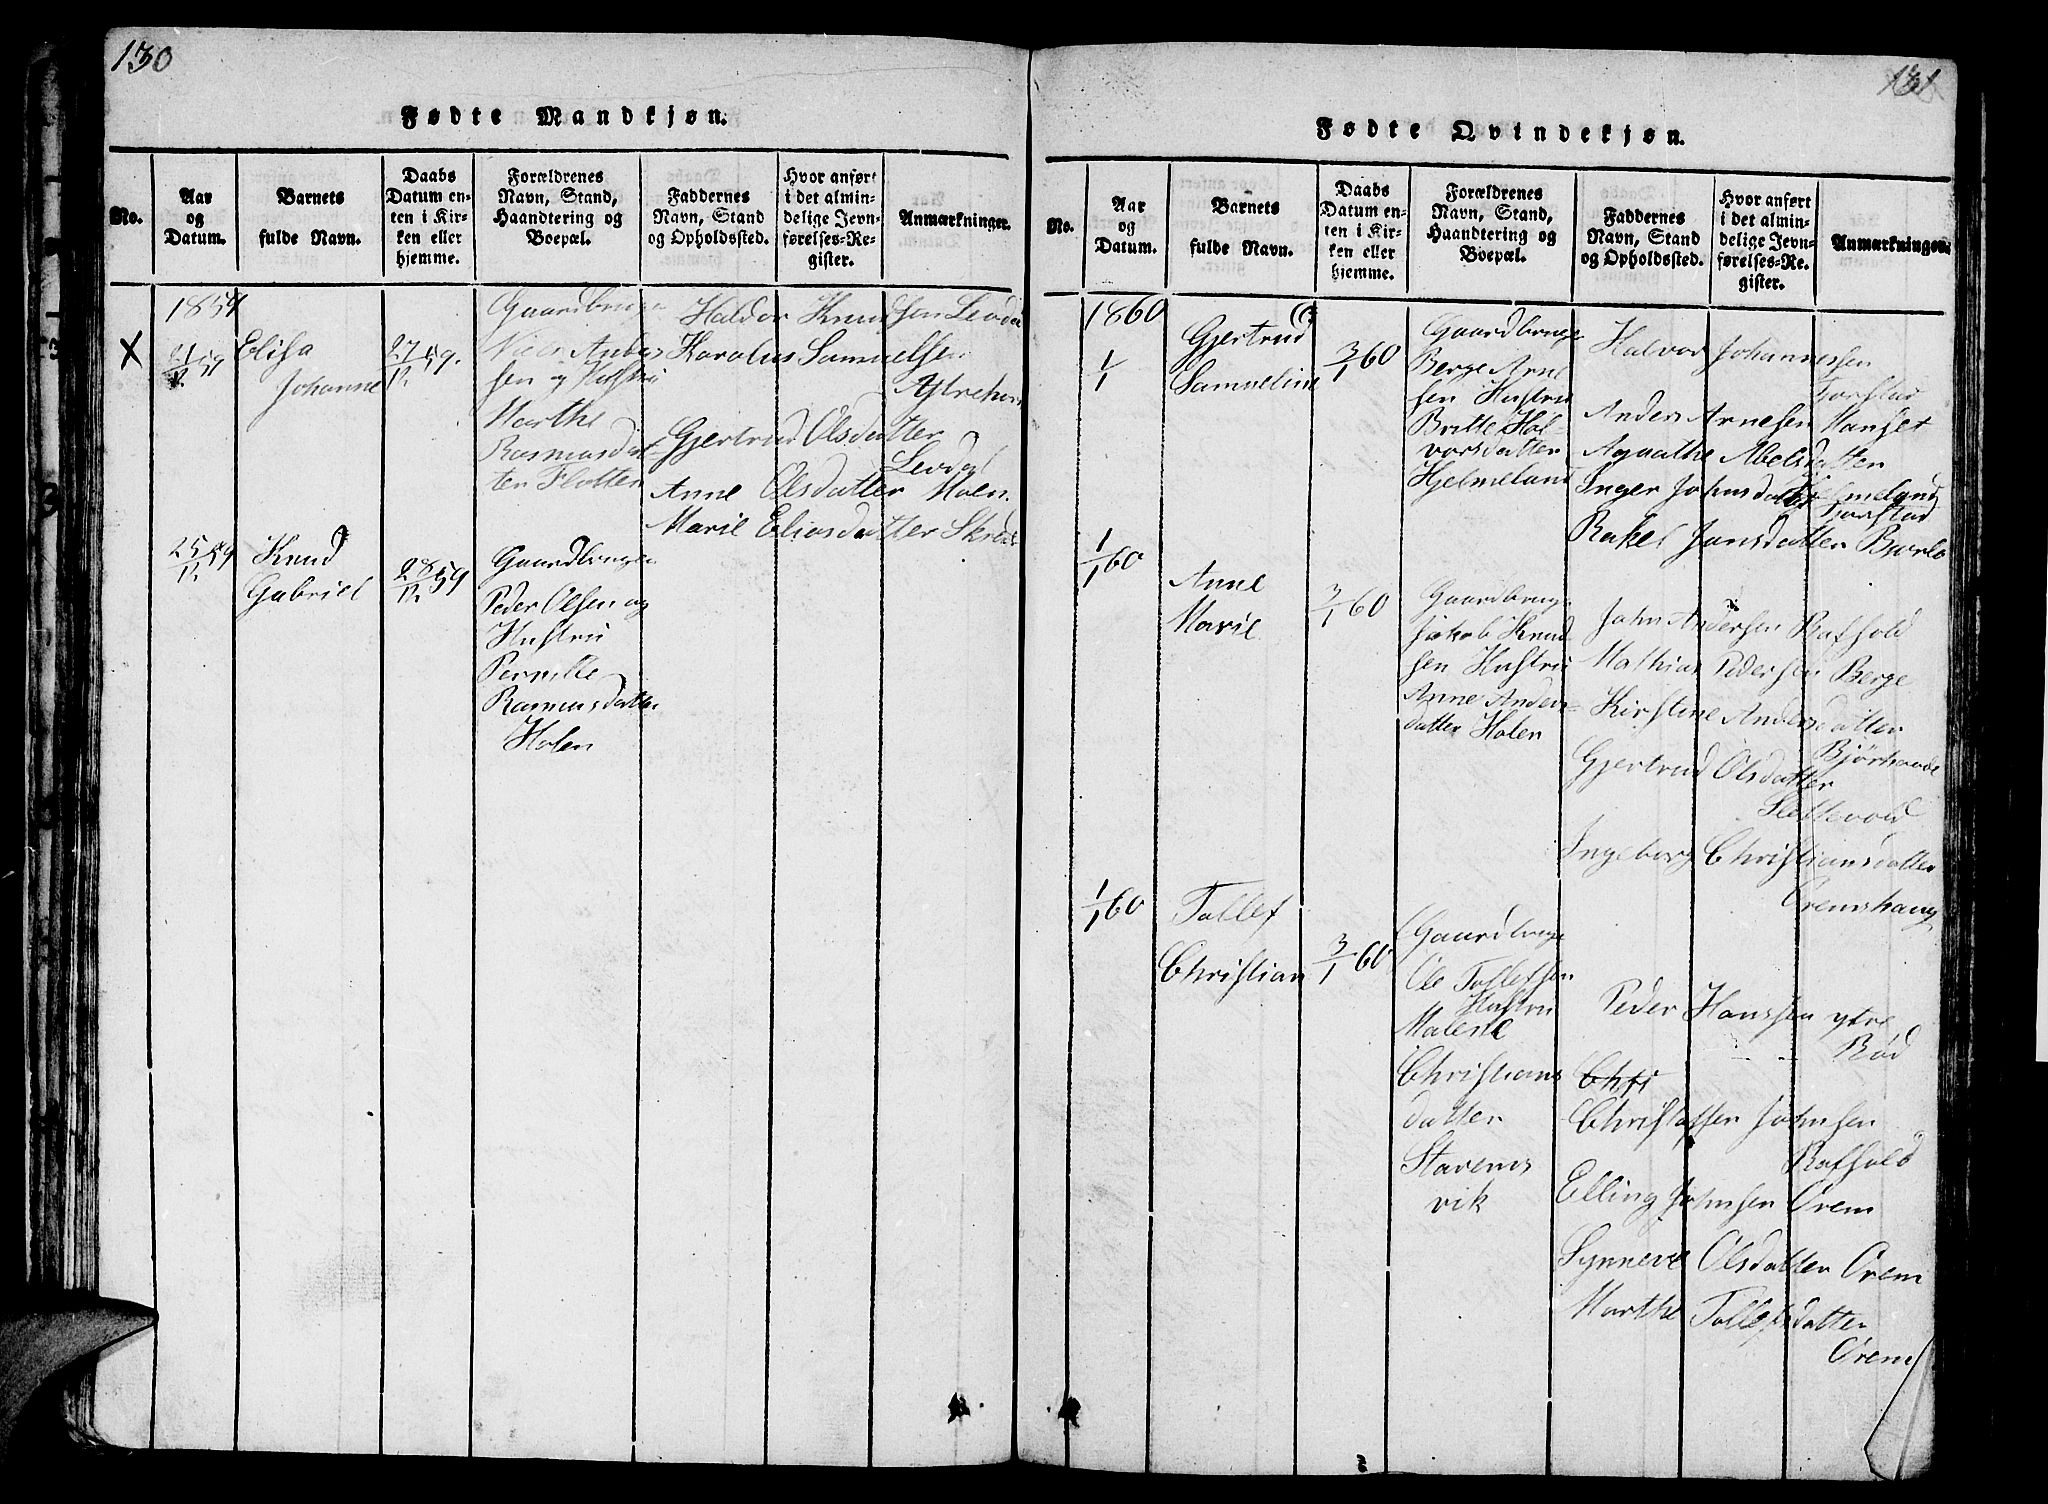 130
Fødte Mandkjøn.
No.
Aar
og
Datum.
Barnets
fulde Navn.
Daabs
Datum en-
ten i Kir-
ken eller
hjemme.
Forældrenes
Navn, Stand,
Haandtering og
Boepæl.
Faddernes
Navn, Stand
og Opholdssted.
Hvor anført
i det almin-
delige Jevn-
førelses-Re-
gister.
Anmærkninger.
1859
X
21/12 59
Elisa
Johanne
27/12 59.
Gaardbruger
Niels Anders
sen og Hustru
Marthe
Rasmusdat
ter Flotten
Haldor Knudsen Levdal
Karolus Samuelsen
Gjertrud Olsdatter
Levdal
Anne Olsdatter Moln
Marie Eliasdatter
25/12 59
Knud
Gabriel
28/12 59
Gaardbruger
Peder Olsen og
Hustru
Pernille
Rasmusdatter
Holen
131
Fødte Qvindekjøn.
No.
Aar
og
Datum.
Barnets
fulde Navn.
Daabs
Datum en-
ten i Kir-
ken eller
hjemme.
Forældrenes
Navn, Stand,
Haandtering og
Boepæl.
Faddernes
Navn, Stand
og Opholdssted.
Hvor anført
i det almin-
delige Jevn-
førelses-Re-
gister.
Anmærkninger.
1860
1/1
Gjertrud
Samueline
3/1 60
Gaardbruge
Berge Arne
sen Hustru
Britte Hal-
vorsdatter
Hjelmeland
Halvor Johannessen
Torstad
Anders Arnesen Hanset
Agaathe Abelsdatter
Hjelmeland
Inger Johnsdatter
Torstad
Rakel Jonsdatter
1/1 60
Anne
Marie
3/1 60
Gaardbruge
Jakob Knud
sen Hustru
Anne Anders
datter Holen
John Andersen Rafshold
Mathias Pedersen Berge
Kirstine Andersdatter
Gjertrud Olsdatter
Slettevold
Ingeborg Christiansdatter
Oremshaug
1/1 60
Tollef
Christian
3/1 60
Gaardbruge
Ole Tollefsen
Hustru
Malene
Christians
datter
Stavems
vik
Peder Hanssen ytre
Rød
Chri
Christoffer Johnsen
Rafshold
Elling Johnsen Orem
Synneve Olsdatter Orem
Marthe Tollefsdatter
Orem